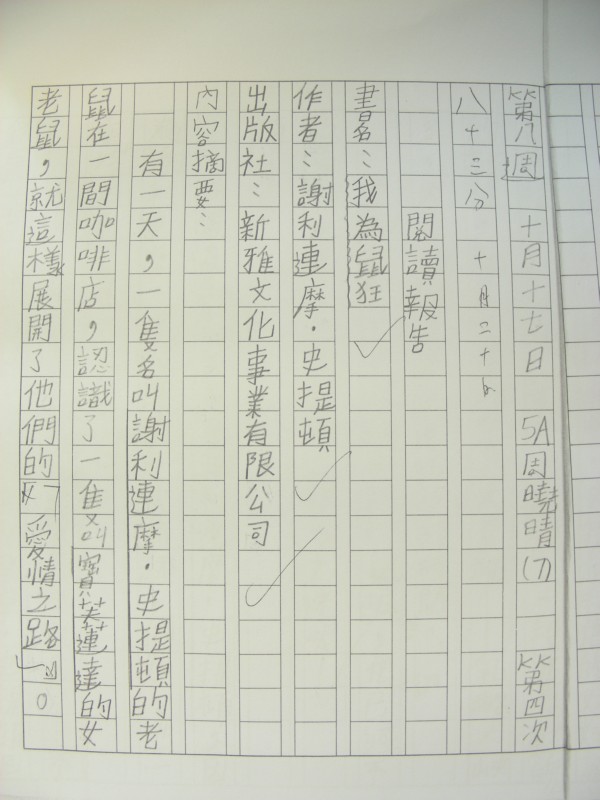 第八週 十月十七日 5A 周曉晴(7) 第四次
八十三分 十月二十
閱讀報告
書名：我為鼠狂
作者：謝利連摩·史提頓
出版社：新雅文化事業有限公司
內容摘要：
有一天，一隻名叫謝利連摩·史提頓的老
鼠在一間咖啡店，認識了一隻叫寶芙蓮達的女
老鼠，就這樣展開了他們的「愛情之路」。